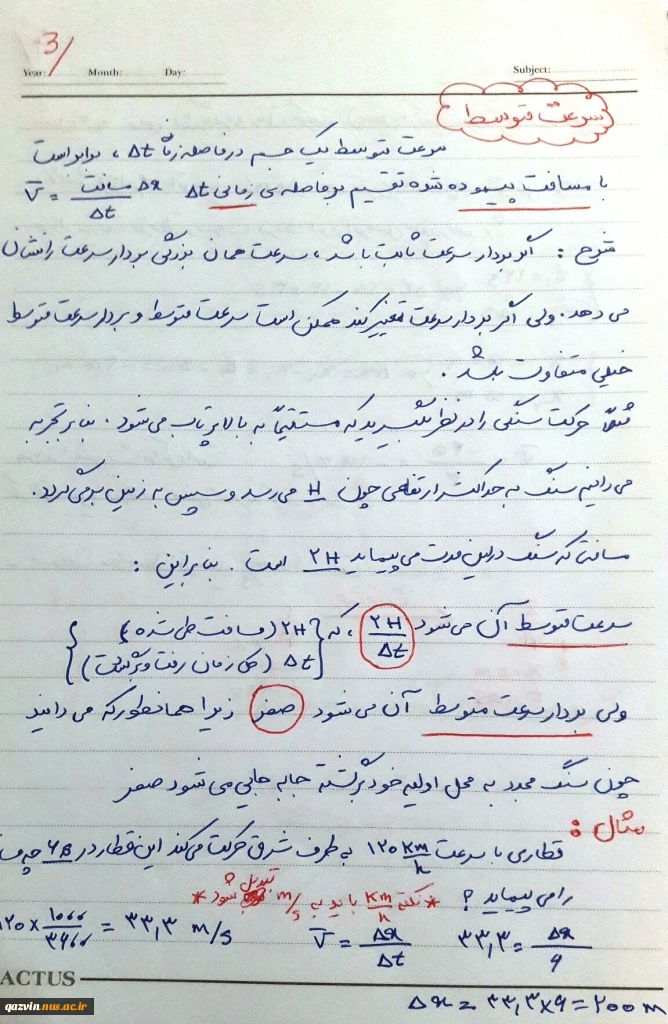 3/
Year: Month: Day: Subject:
سرعت متوسط
سرعت متوسط یک جسم در فاصله زمانی Δt، برابر است
با مسافت پیموده شده تقسیم بر فاصله‌ی زمانی Δt V̄ = مسافت Δx / Δt
شرح: اگر بردار سرعت ثابت باشد، سرعت همان بزرگی بردار سرعت را نشان
می دهد. ولی اگر بردار سرعت تغییر کند ممکن است سرعت متوسط و بردار سرعت متوسط
خیلی متفاوت باشد.
مثلاً حرکت سنگی را در نظر بگیرید که مستقیماً به بالا پرتاب می شود. بنا بر تجربه
می دانیم سنگ به حداکثر ارتفاعی چون H می رسد و سپس به زمین بر می گردد.
مسافتی که سنگ در این مدت می پیماید ۲H است. بنابراین:
سرعت متوسط آن می شود ۲H / Δt، که { ۲H (مسافت طی شده)
Δt (کل زمان رفت و برگشت) }
ولی بردار سرعت متوسط آن می شود صفر زیرا همانطور که می دانید
چون سنگ مجدد به محل اولیه خود برگشته جابه جایی می شود صفر
مثال:
قطاری با سرعت ۱۲۰ km/h به طرف شرق حرکت می کند این قطار در
را می پیماید؟ * نکته km/h باید به m/s تبدیل شود *
۱۲۰ × ۱۰۰۰/۳۶۰۰ = ۳۳,۳ m/s V̄ = Δx/Δt ۳۳,۳ = Δx/۶
Δx = ۳۳,۳×۶ = ۲۰۰ m
ACTUS
qazvin.nus.ac.ir